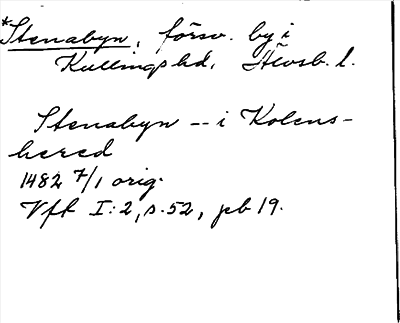 *Stenabyn, försv. by i
Kullings hd, Älvsb. l.
Stenabyn -- i Kolens-
hered
1482 7/1 orig.
Vft I:2, s. 52, pb 19.